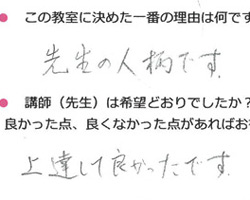 ● この教室に決めた一番の理由は何です
先生の人柄です.
● 講師（先生）は希望どおりでしたか？
良かった点、良くなかった点があればお
上達して良かったです.